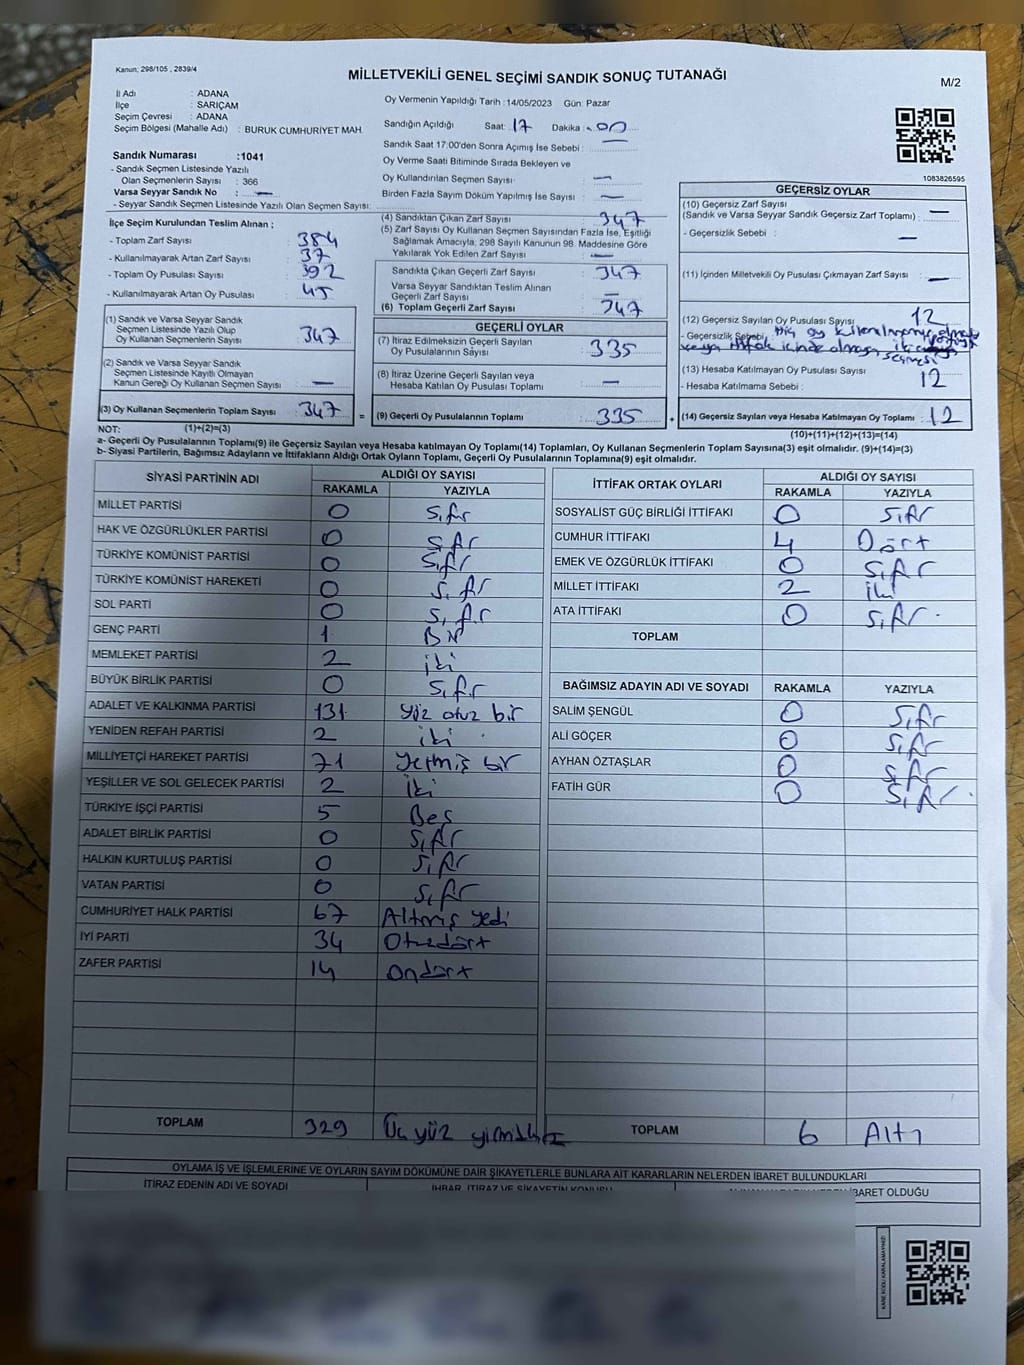 Kanun; 298/105 , 2839/4
MİLLETVEKİLİ GENEL SEÇİMİ SANDIK SONUÇ TUTANAĞI
M/2
İl Adı : ADANA
İlçe : SARIÇAM
Seçim Çevresi : ADANA
Seçim Bölgesi (Mahalle Adı) : BURUK CUMHURİYET MAH.
Oy Vermenin Yapıldığı Tarih :14/05/2023 Gün: Pazar
Sandığın Açıldığı Saat: 17 Dakika : 00
Sandık Saat 17:00'den Sonra Açımış İse Sebebi : —
Oy Verme Saati Bitiminde Sırada Bekleyen ve
Oy Kullandırılan Seçmen Sayısı : —
Birden Fazla Sayım Döküm Yapılmış İse Sayısı : —
1083826595
Sandık Numarası :1041
- Sandık Seçmen Listesinde Yazılı
Olan Seçmenlerin Sayısı : 366
Varsa Seyyar Sandık No : —
- Seyyar Sandık Seçmen Listesinde Yazılı Olan Seçmen Sayısı:
İlçe Seçim Kurulundan Teslim Alınan ;
- Toplam Zarf Sayısı : 384
- Kullanılmayarak Artan Zarf Sayısı : 37
- Toplam Oy Pusulası Sayısı : 392
- Kullanılmayarak Artan Oy Pusulası : 45
(1) Sandık ve Varsa Seyyar Sandık
Seçmen Listesinde Yazılı Olup
Oy Kullanan Seçmenlerin Sayısı : 347
(2) Sandık ve Varsa Seyyar Sandık
Seçmen Listesinde Kayıtlı Olmayan
Kanun Gereği Oy Kullanan Seçmen Sayısı : —
(3) Oy Kullanan Seçmenlerin Toplam Sayısı : 347 =
(4) Sandıktan Çıkan Zarf Sayısı : 347
(5) Zarf Sayısı Oy Kullanan Seçmen Sayısından Fazla İse, Eşitliği
Sağlamak Amacıyla, 298 Sayılı Kanunun 98. Maddesine Göre
Yakılarak Yok Edilen Zarf Sayısı : —
Sandıkta Çıkan Geçerli Zarf Sayısı : 347
Varsa Seyyar Sandıktan Teslim Alınan
Geçerli Zarf Sayısı : —
(6) Toplam Geçerli Zarf Sayısı : 347
GEÇERLİ OYLAR
(7) İtiraz Edilmeksizin Geçerli Sayılan
Oy Pusulalarının Sayısı : 335
(8) İtiraz Üzerine Geçerli Sayılan veya
Hesaba Katılan Oy Pusulası Toplamı : —
(9) Geçerli Oy Pusulalarının Toplamı : 335 +
GEÇERSİZ OYLAR
(10) Geçersiz Zarf Sayısı
(Sandık ve Varsa Seyyar Sandık Geçersiz Zarf Toplamı) : —
- Geçersizlik Sebebi : —
(11) İçinden Milletvekili Oy Pusulası Çıkmayan Zarf Sayısı : —
(12) Geçersiz Sayılan Oy Pusulası Sayısı : 12
- Geçersizlik Sebebi : Hiç oy
veya ittifak içinde olmayan iki
seçmesi
(13) Hesaba Katılmayan Oy Pusulası Sayısı : 12
- Hesaba Katılmama Sebebi :
(14) Geçersiz Sayılan veya Hesaba Katılmayan Oy Toplamı : 12
NOT: (1)+(2)=(3) (10)+(11)+(12)+(13)=(14)
a- Geçerli Oy Pusulalarının Toplamı(9) ile Geçersiz Sayılan veya Hesaba katılmayan Oy Toplamı(14) Toplamları, Oy Kullanan Seçmenlerin Toplam Sayısına(3) eşit olmalıdır. (9)+(14)=(3)
b- Siyasi Partilerin, Bağımsız Adayların ve İttifakların Aldığı Ortak Oyların Toplamı, Geçerli Oy Pusulalarının Toplamına(9) eşit olmalıdır.
SİYASİ PARTİNİN ADI ALDIĞI OY SAYISI
RAKAMLA YAZIYLA
MİLLET PARTİSİ 0 Sıfır
HAK VE ÖZGÜRLÜKLER PARTİSİ 0 Sıfır
TÜRKİYE KOMÜNİST PARTİSİ 0 Sıfır
TÜRKİYE KOMÜNİST HAREKETİ 0 Sıfır
SOL PARTİ 0 Sıfır
GENÇ PARTİ 1 Bir
MEMLEKET PARTİSİ 2 iki
BÜYÜK BİRLİK PARTİSİ 0 Sıfır
ADALET VE KALKINMA PARTİSİ 131 yüz otuz bir
YENİDEN REFAH PARTİSİ 2 iki
MİLLİYETÇİ HAREKET PARTİSİ 71 yetmiş bir
YEŞİLLER VE SOL GELECEK PARTİSİ 2 iki
TÜRKİYE İŞÇİ PARTİSİ 5 Beş
ADALET BİRLİK PARTİSİ 0 Sıfır
HALKIN KURTULUŞ PARTİSİ 0 Sıfır
VATAN PARTİSİ 0 Sıfır
CUMHURİYET HALK PARTİSİ 67 Altmış yedi
İYİ PARTİ 34 Otuzdört
ZAFER PARTİSİ 14 Ondört
TOPLAM 329 Üç yüz yirmidokuz
İTTİFAK ORTAK OYLARI ALDIĞI OY SAYISI
RAKAMLA YAZIYLA
SOSYALİST GÜÇ BİRLİĞİ İTTİFAKI 0 Sıfır
CUMHUR İTTİFAKI 4 Dört
EMEK VE ÖZGÜRLÜK İTTİFAKI 0 Sıfır
MİLLET İTTİFAKI 2 iki
ATA İTTİFAKI 0 Sıfır
TOPLAM
BAĞIMSIZ ADAYIN ADI VE SOYADI RAKAMLA YAZIYLA
SALİM ŞENGÜL 0 Sıfır
ALİ GÖÇER 0 Sıfır
AYHAN ÖZTAŞLAR 0 Sıfır
FATİH GÜR 0 Sıfır
TOPLAM 6 Altı
OYLAMA İŞ VE İŞLEMLERİNE VE OYLARIN SAYIM DÖKÜMÜNE DAİR ŞİKAYETLERLE BUNLARA AİT KARARLARIN NELERDEN İBARET BULUNDUKLARI
İTİRAZ EDENİN ADI VE SOYADI İHBAR, İTİRAZ VE ŞİKAYETİN KONUSU İBARET OLDUĞU
KARE KODU KARALAMAYINIZ!